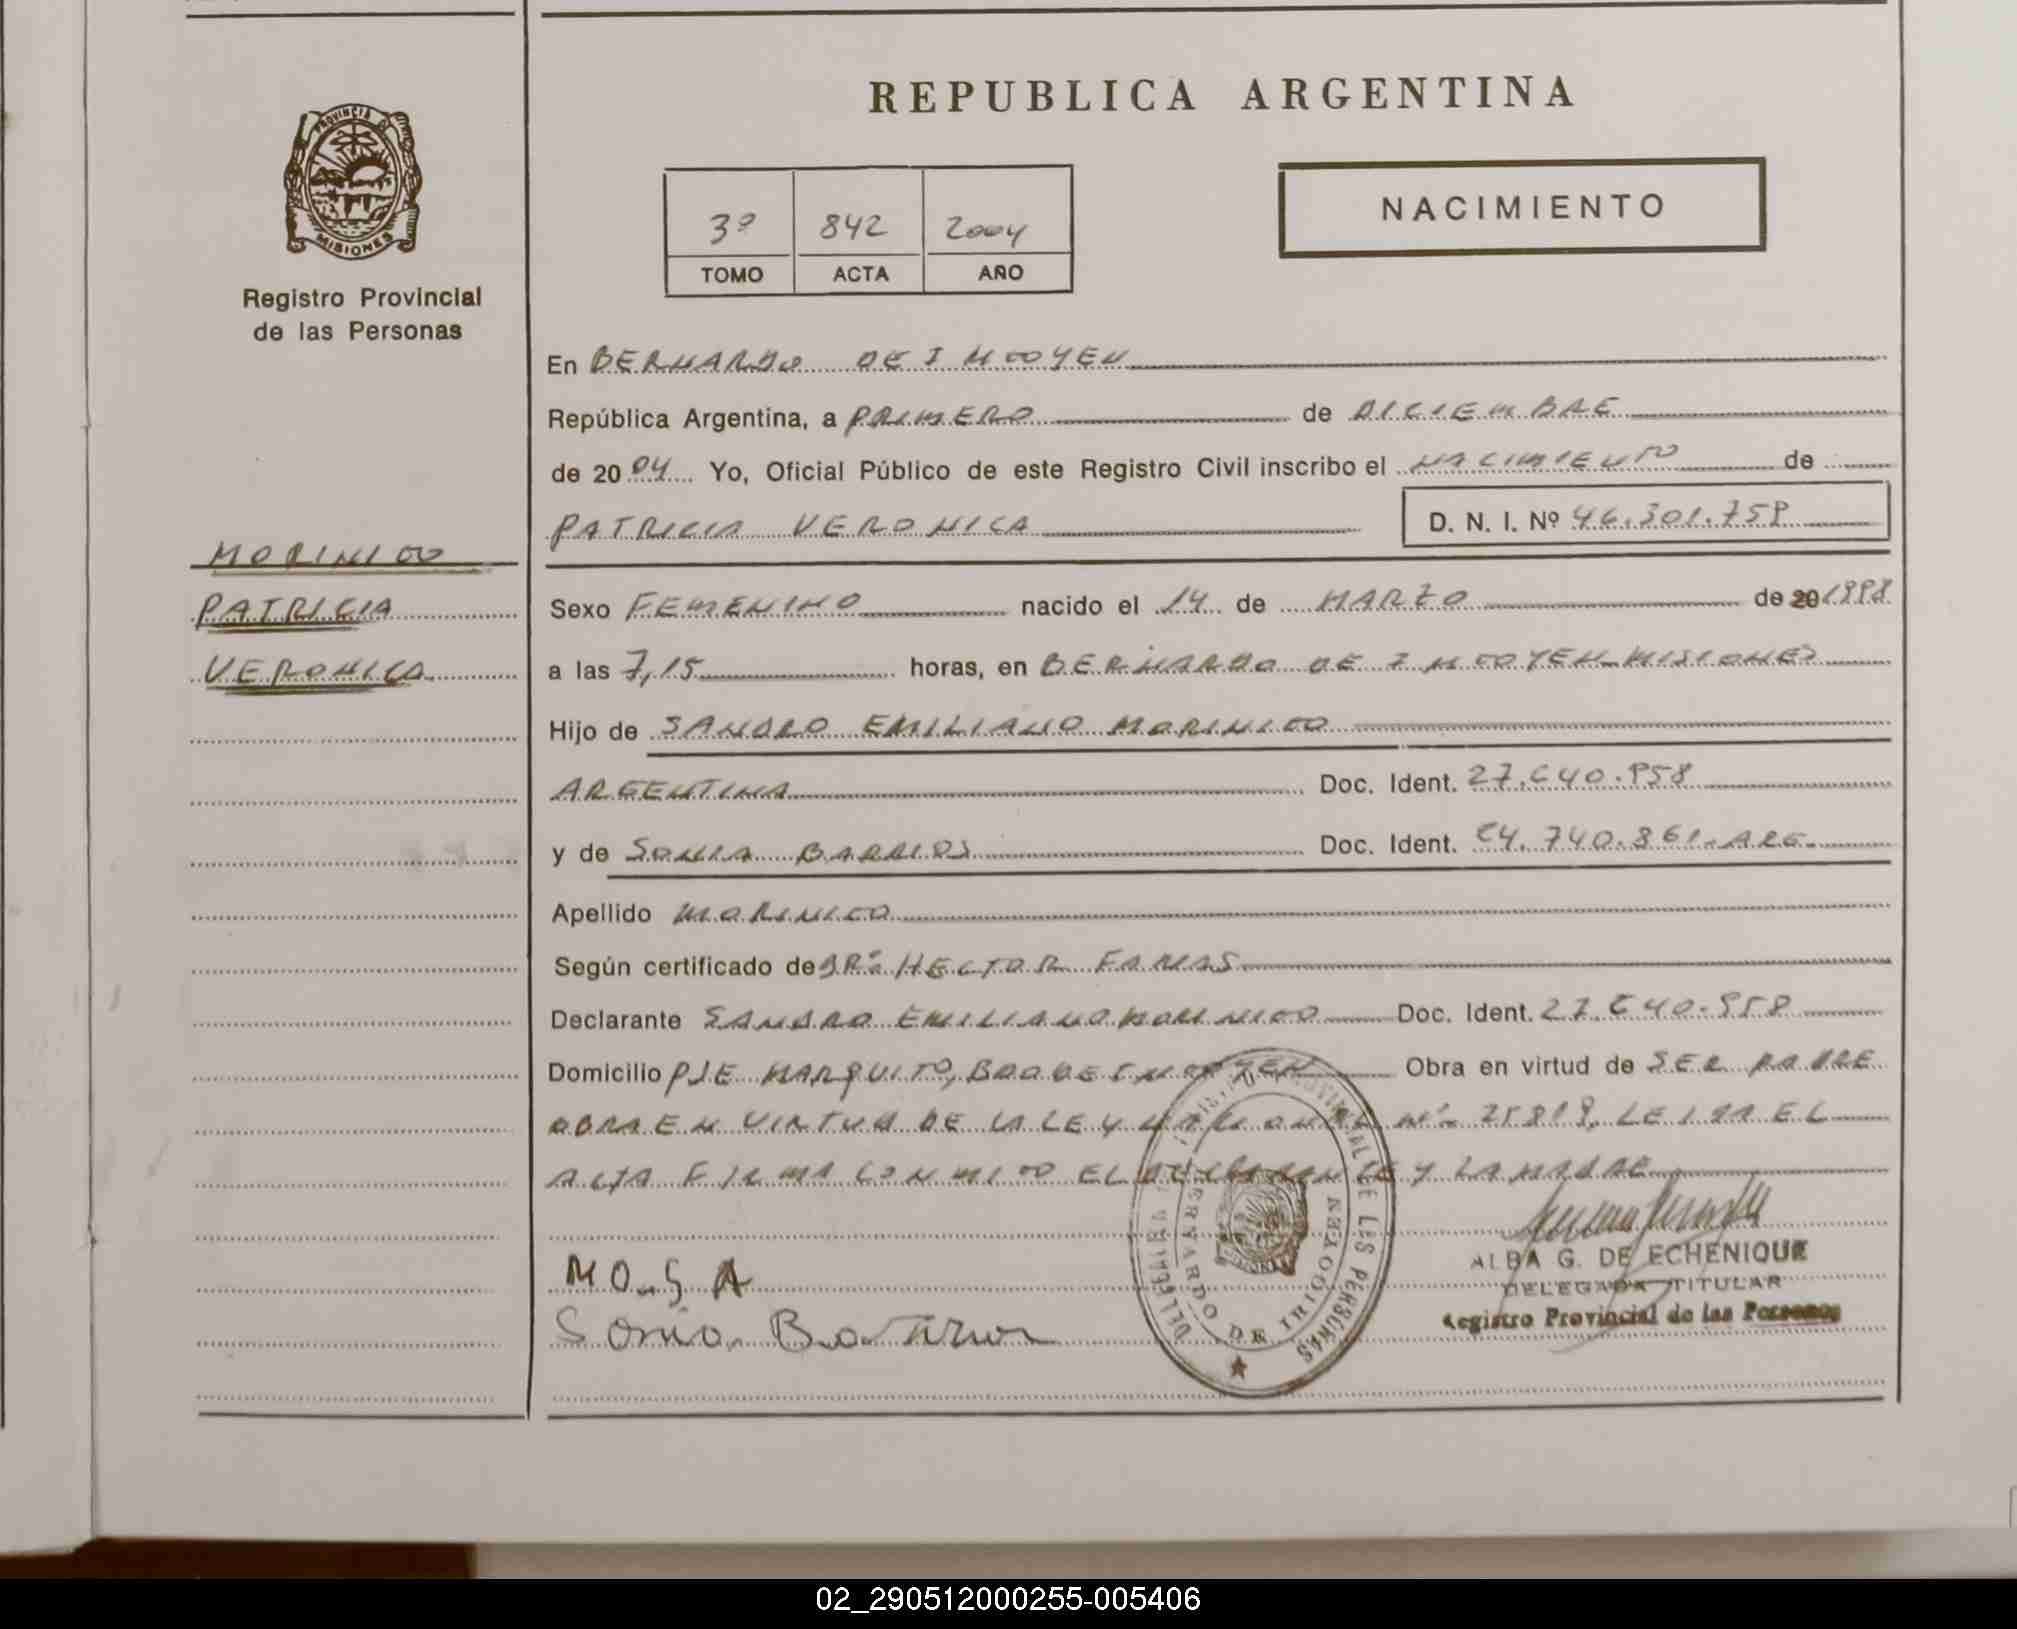 REPUBLICA ARGENTINA
PROVINCIA DE
MISIONES
Registro Provincial
de las Personas
3º 842 2004
TOMO ACTA AÑO
NACIMIENTO
En BERNARDO DE IRIGOYEN
República Argentina, a PRIMERO de DICIEMBRE
de 2004 Yo, Oficial Público de este Registro Civil inscribo el NACIMIENTO de
PATRICIA VERONICA D. N. I. Nº 46.301.758
MORINIGO
PATRICIA
VERONICA
Sexo FEMENINO nacido el 14 de MARZO de 20 1998
a las 7,15 horas, en BERNARDO DE IRIGOYEN-MISIONES
Hijo de SANDRO EMILIANO MORINIGO
ARGENTINA Doc. Ident. 27.640.958
y de SONIA BARRIOS Doc. Ident. 740.861-ARG.
Apellido MORINIGO
Según certificado de HECTOR
Declarante SANDRO EMILIANO MORINIGO Doc. Ident. 27.640.958
Domicilio PJE MARQUITO, BDO DE IRIGOYEN Obra en virtud de SER PADRE
OBRA EN VIRTUD DE LA LEY NACIONAL Nº 25819. LEIDA EL
ACTA FIRMA CONMIGO EL DECLARANTE Y LA MADRE
MO.SA
Sonia Barrios
DELEGACION REGISTRO PROVINCIAL DE LAS PERSONAS
BERNARDO DE IRIGOYEN
ALBA G. DE ECHENIQUE
DELEGADA TITULAR
Registro Provincial de las Personas
02_290512000255-005406